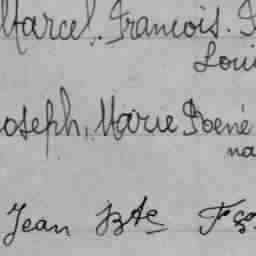 Marcel. Francois. 
Loui
oseph, Marie Roené
na
Jean Bte Fço